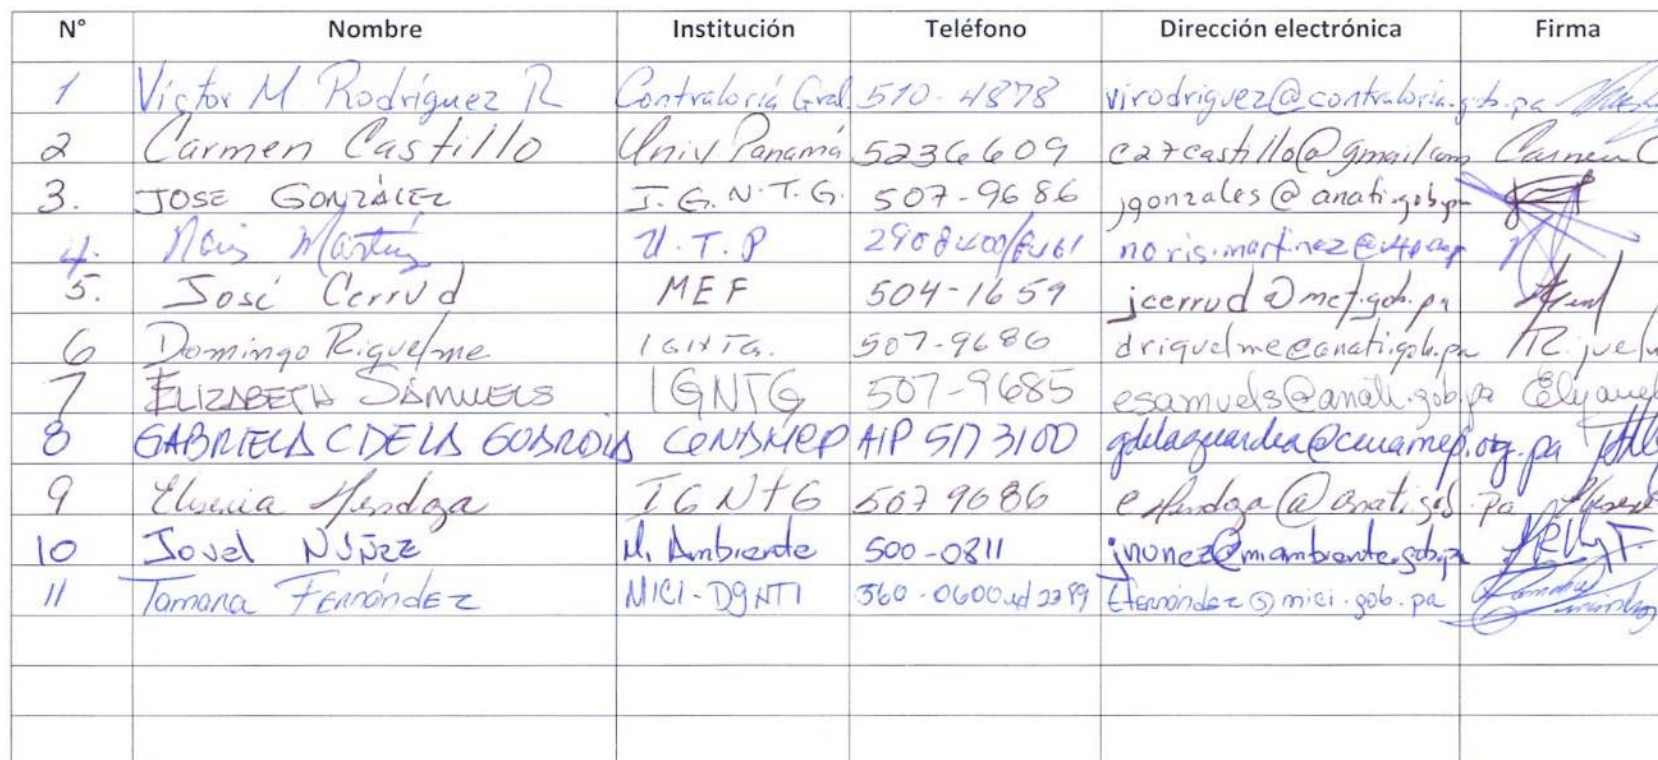 N° Nombre Institución Teléfono Dirección electrónica Firma
1 Víctor M. Rodríguez R Contraloría Gral. 510-4878 virodriguez@contraloria.gob.pa
2 Carmen Castillo Univ. Panamá 5236609 c27castillo@gmail.com Carmen C
3. JOSE GONZÁLEZ I.G.N.T.G. 507-9686 jgonzales@anati.gob.pa
4. Martínez U.T.P 2908400/ noris.martinez@
5. José Cerrud MEF 504-1659 jcerrud@mef.gob.pa
6 Domingo Riquelme IGNTG. 507-9686 driquelme@anati.gob.pa
7 ELIZABETH SAMUELS IGNTG 507-9685 esamuels@anati.gob.pa
8 GABRIELA C DE LA GUARDIA CENAMEP AIP 517 3100 gdelaguardia@cenamep.org.pa
9 Mendoza IGNTG 507 9686 eMendoza@anati.gob.pa
10 Jovel NÚÑEZ M. Ambiente 500-0811 jnunez@miambiente.gob.pa
11 Tamara FERNÁNDEZ MICI-DGNTI 560-0600 tfernández@mici.gob.pa